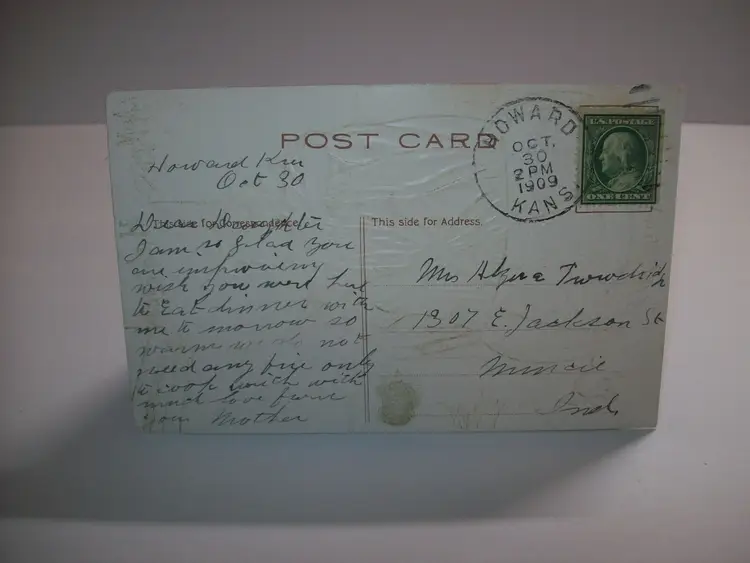 POST CARD
HOWARD
OCT.
30
2 PM
1909
KANS
U.S. POSTAGE
ONE CENT
Howard Kan
Oct 30
This side for Correspondence.
Dear Daughter
I am so glad you
are improving
wish you were here
to Eat dinner with
me to morrow so
warm not
need any fire only
to cook with
much love from
your Mother
This side for Address.
Mrs
1307 E. Jackson St
Muncie
Ind.